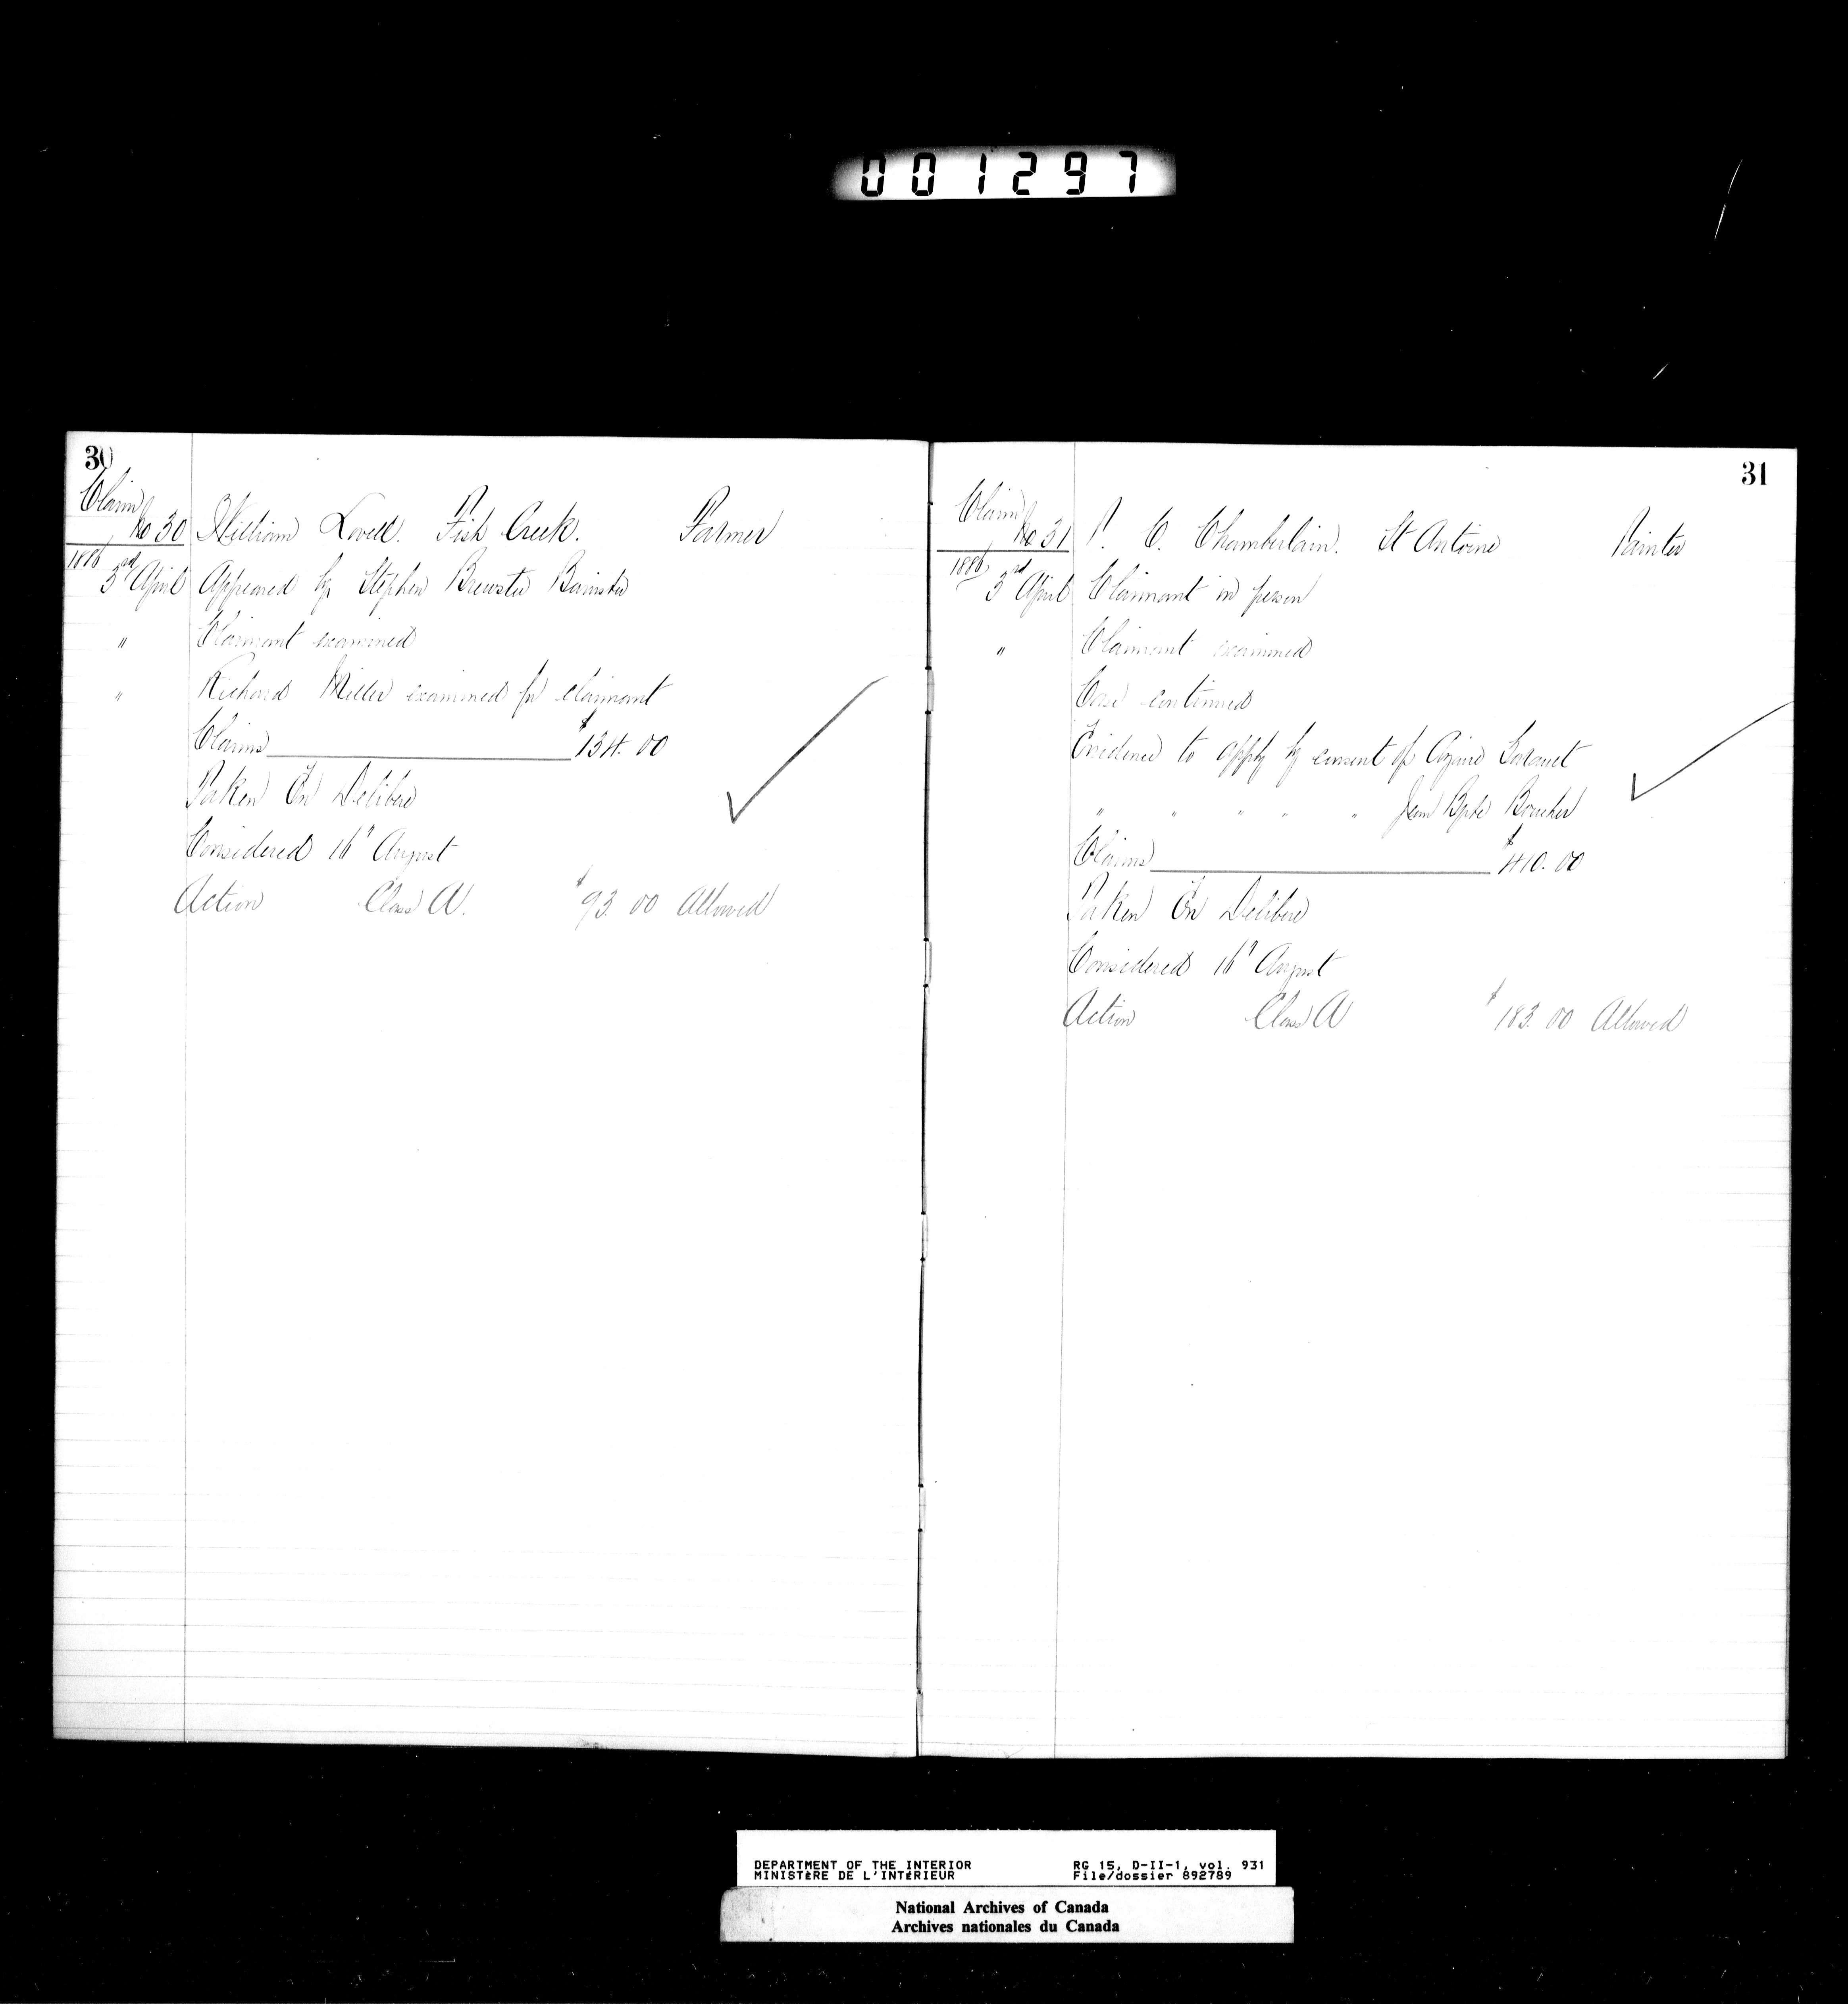 001297
30
Claim
No 30 William Lovell. Fish Creek. Farmer
1886
3rd April Appeared by Stephen Brewster Barrister
" Claimant examined
" Richard Miller examined for claimant
Claims $134.00
Taken En Delibere
Considered 16th August
Action Class A. $93.00 Allowed
31
Claim
No 31 P. C. Chamberlain. St Antoine Painter
1886
3rd April Claimant in person
" Claimant examined
Case continued
Evidence to apply by consent of
" " " " " Jean Bpte Boucher
Claims $410.00
Taken En Delibere
Considered 16th August
Action Class A $183.00 Allowed
DEPARTMENT OF THE INTERIOR RG 15, D-II-1, vol. 931
MINISTÈRE DE L'INTÉRIEUR File/dossier 892789
National Archives of Canada
Archives nationales du Canada